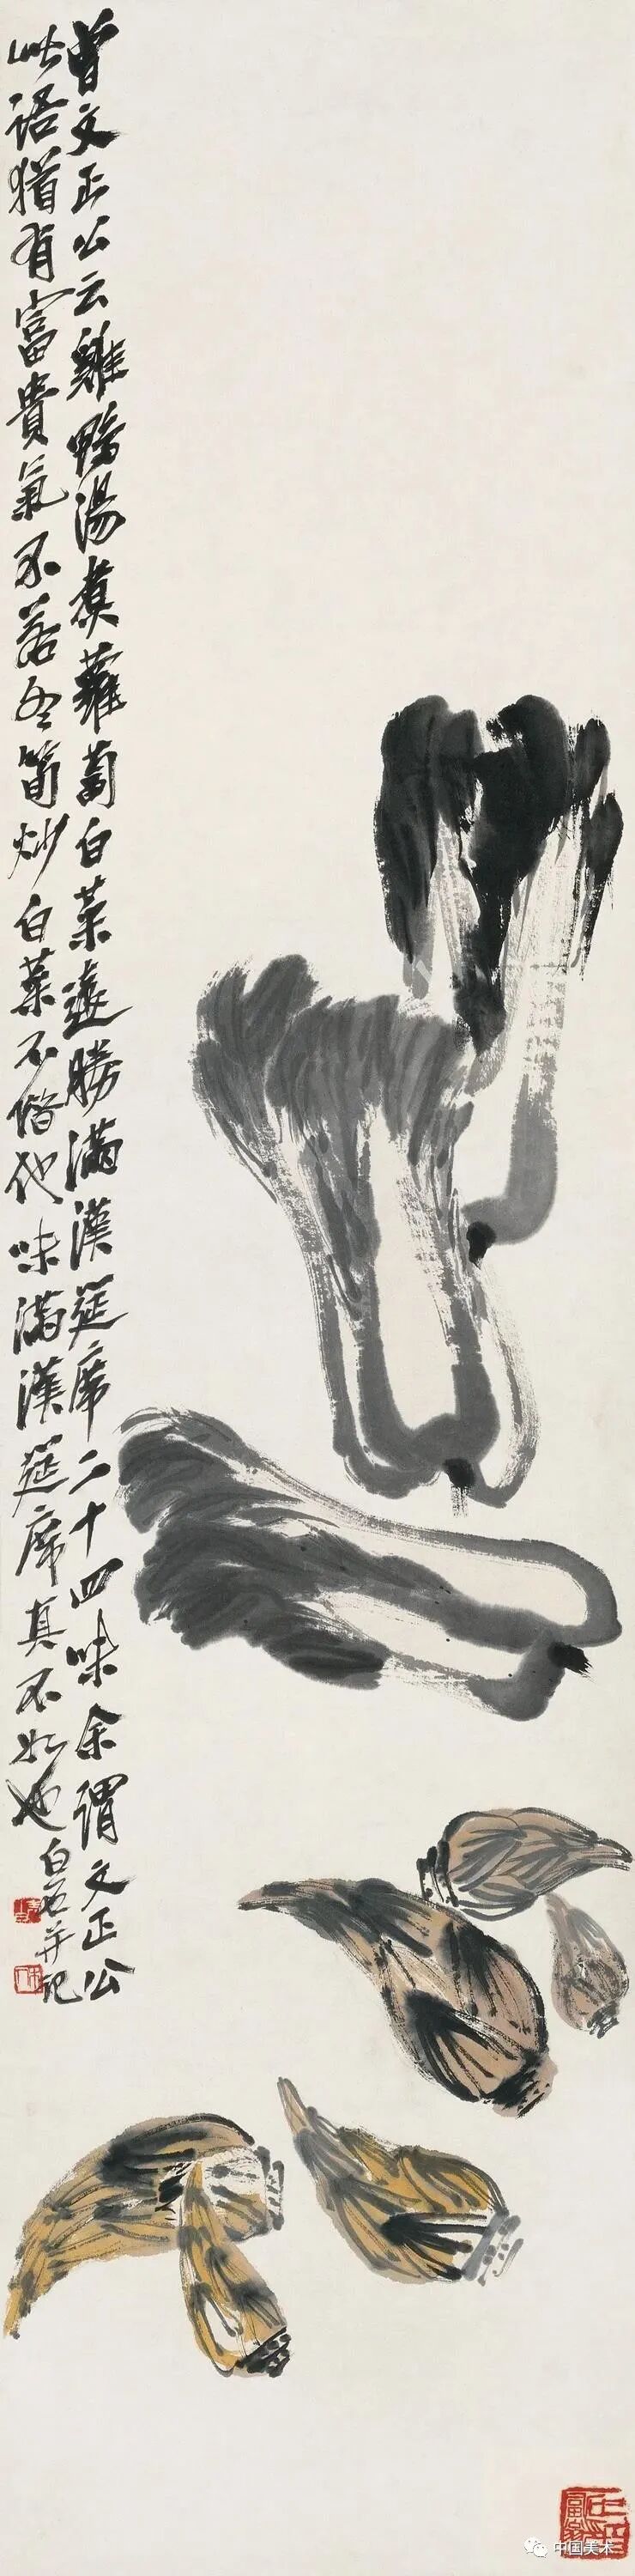 曾文正公云雞鴨湯煑蘿蔔白菜遠勝滿漢筵席二十四味余謂文正公
此語猶有富貴氣不若冬筍炒白菜不借他味滿漢筵席真不如也
白石并記
中国美术